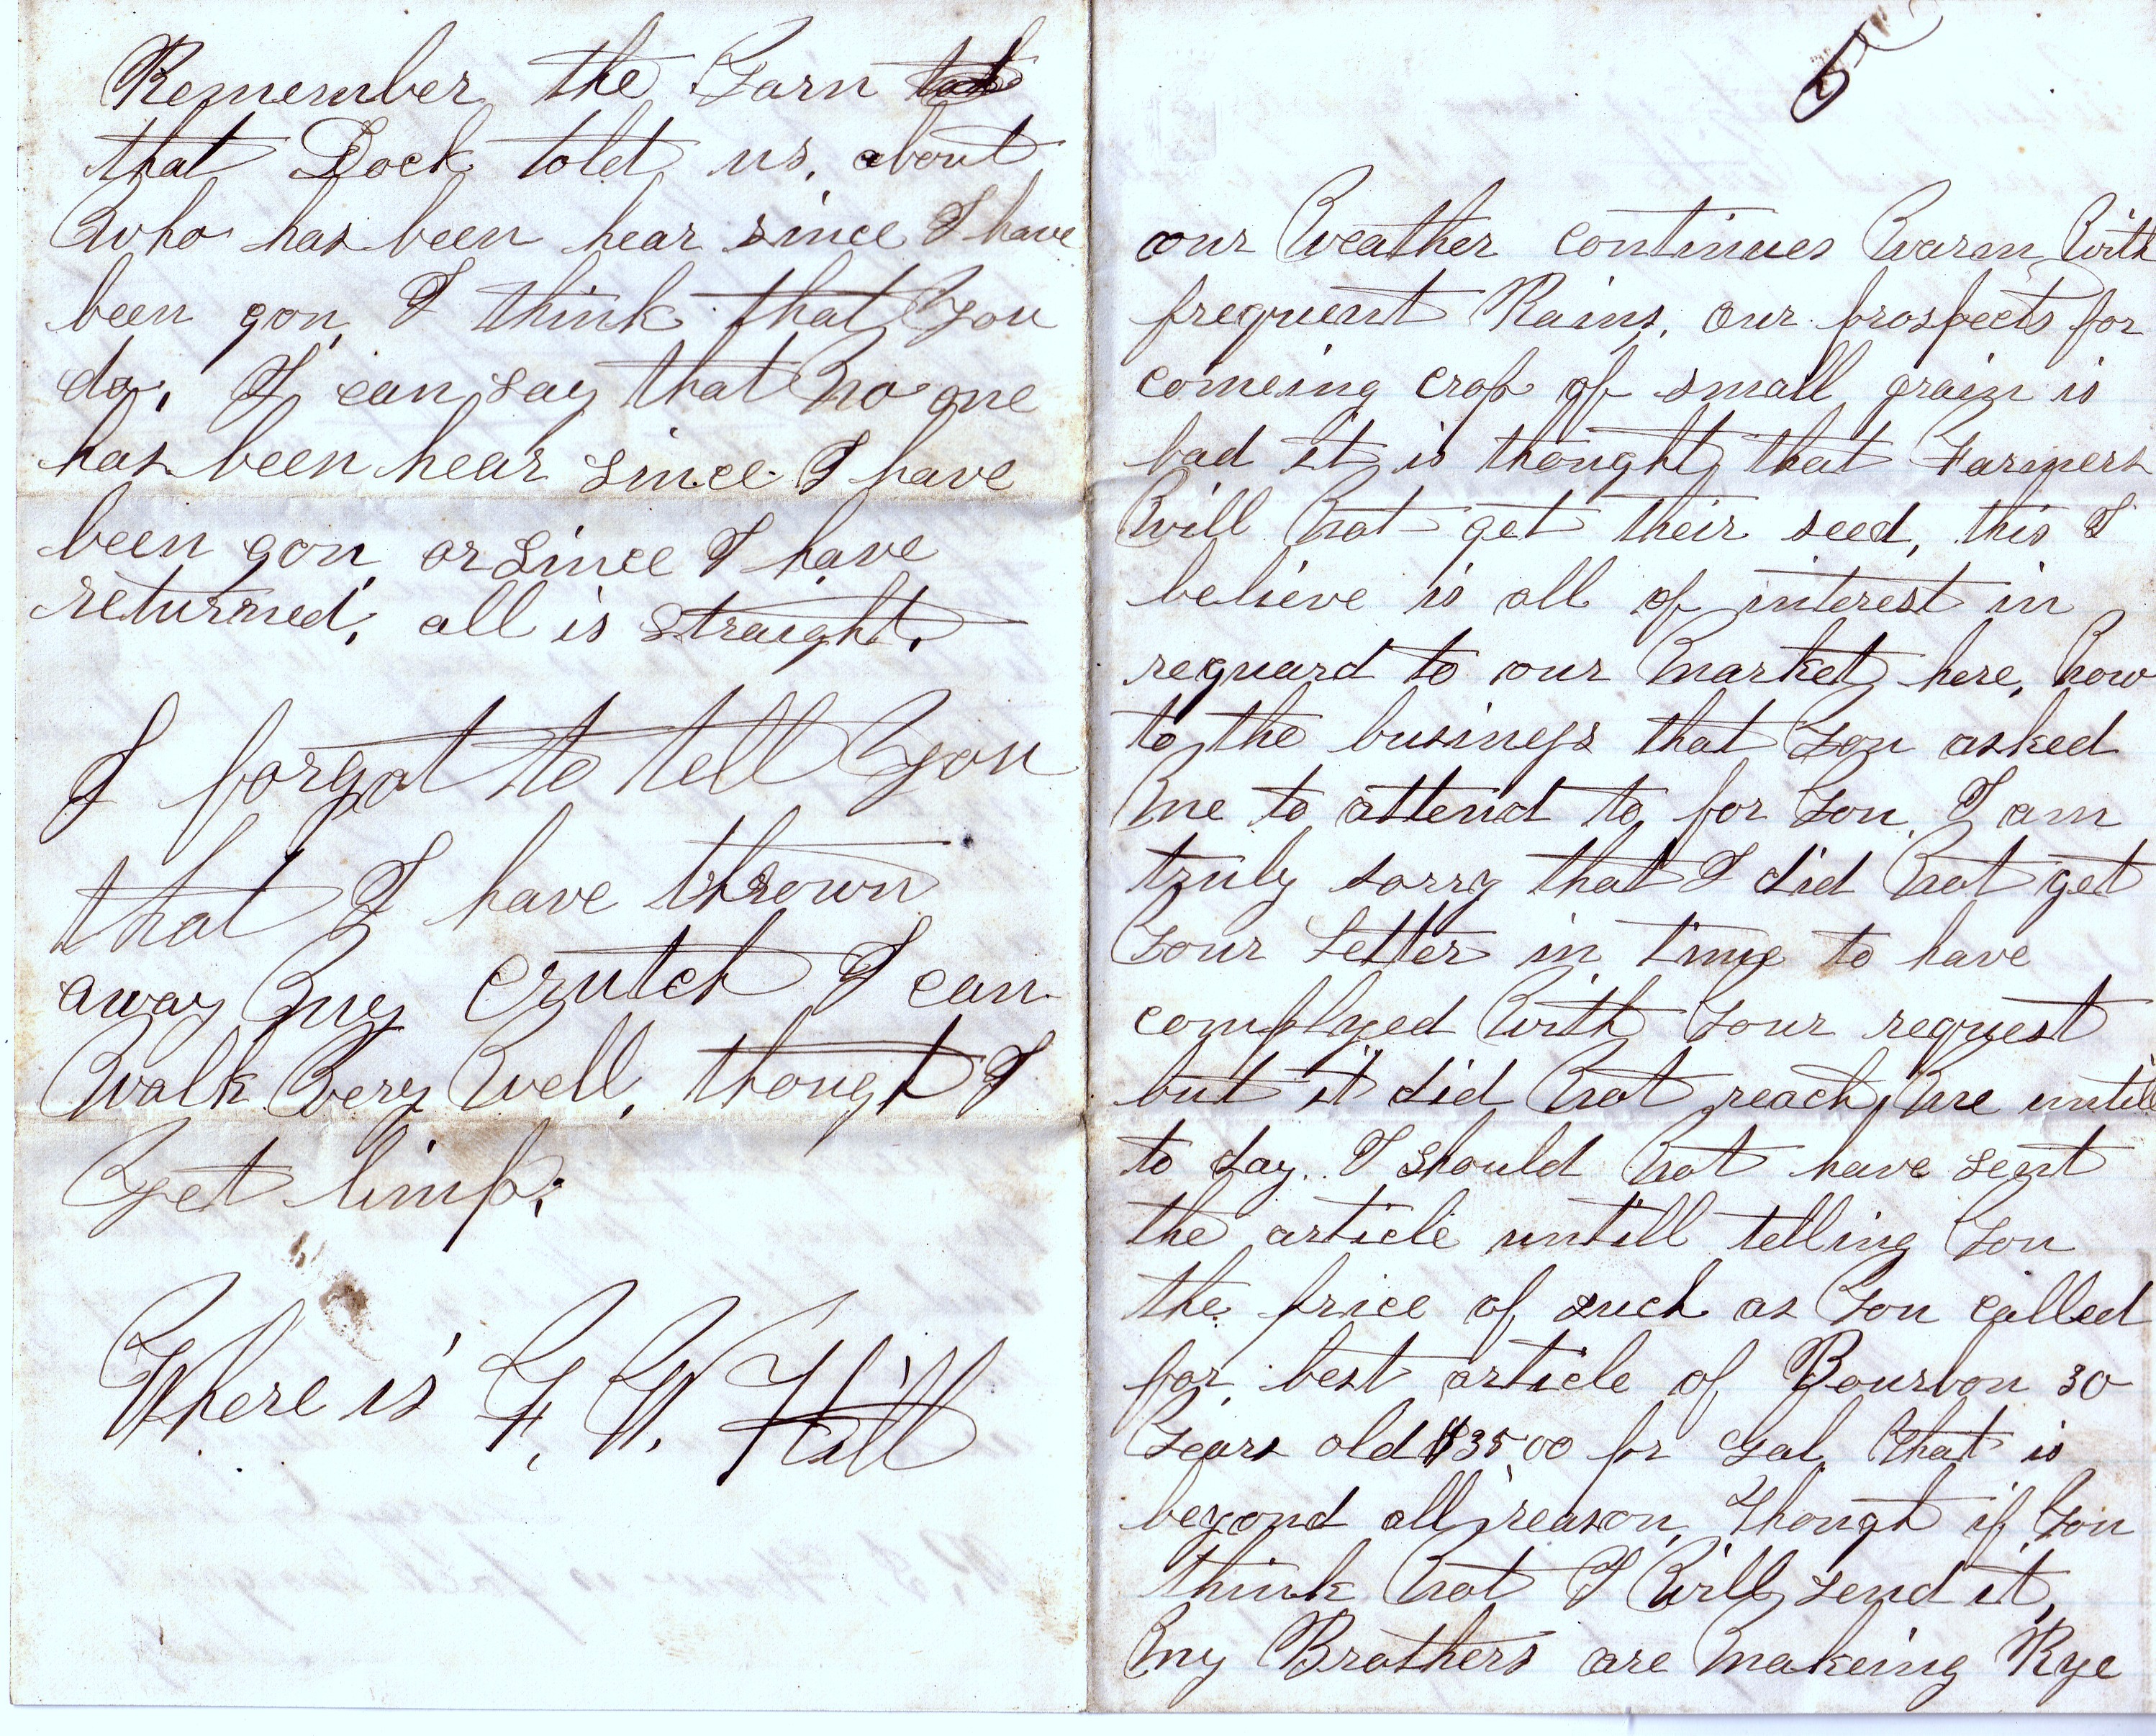 Remember the Yarn
that Dock told us, about
Who has been hear since I have
been gon, I think that You
do, I can say that No one
has been hear since I have
been gon or since I have
returned, all is straight.
I forgot to tell You
that I have thrown
away My crutch I can
Walk Very Well, thought I
Yet limp;
Where is F. W. Hill
5
our Weather continues Warm With
frequent Rains, our prospects for
comeing crop of small grain is
bad it is thought that Farmers
Will Not get their seed, this I
believe is all of interest in
reguard to our Market here, Now
to the business that You asked
Me to attend to for You, I am
truly sorry that I did Not get
Your Letter in time to have
complyed With Your request
but it did Not reach Me untill
to day. I should Not have sent
the article untill telling You
the price of such as You called
for, best article of Bourbon 30
Years old $35.00 pr Gal, that is
beyond all reason, thought if You
think Not I Will send it,
My Brothers are Makeing Rye